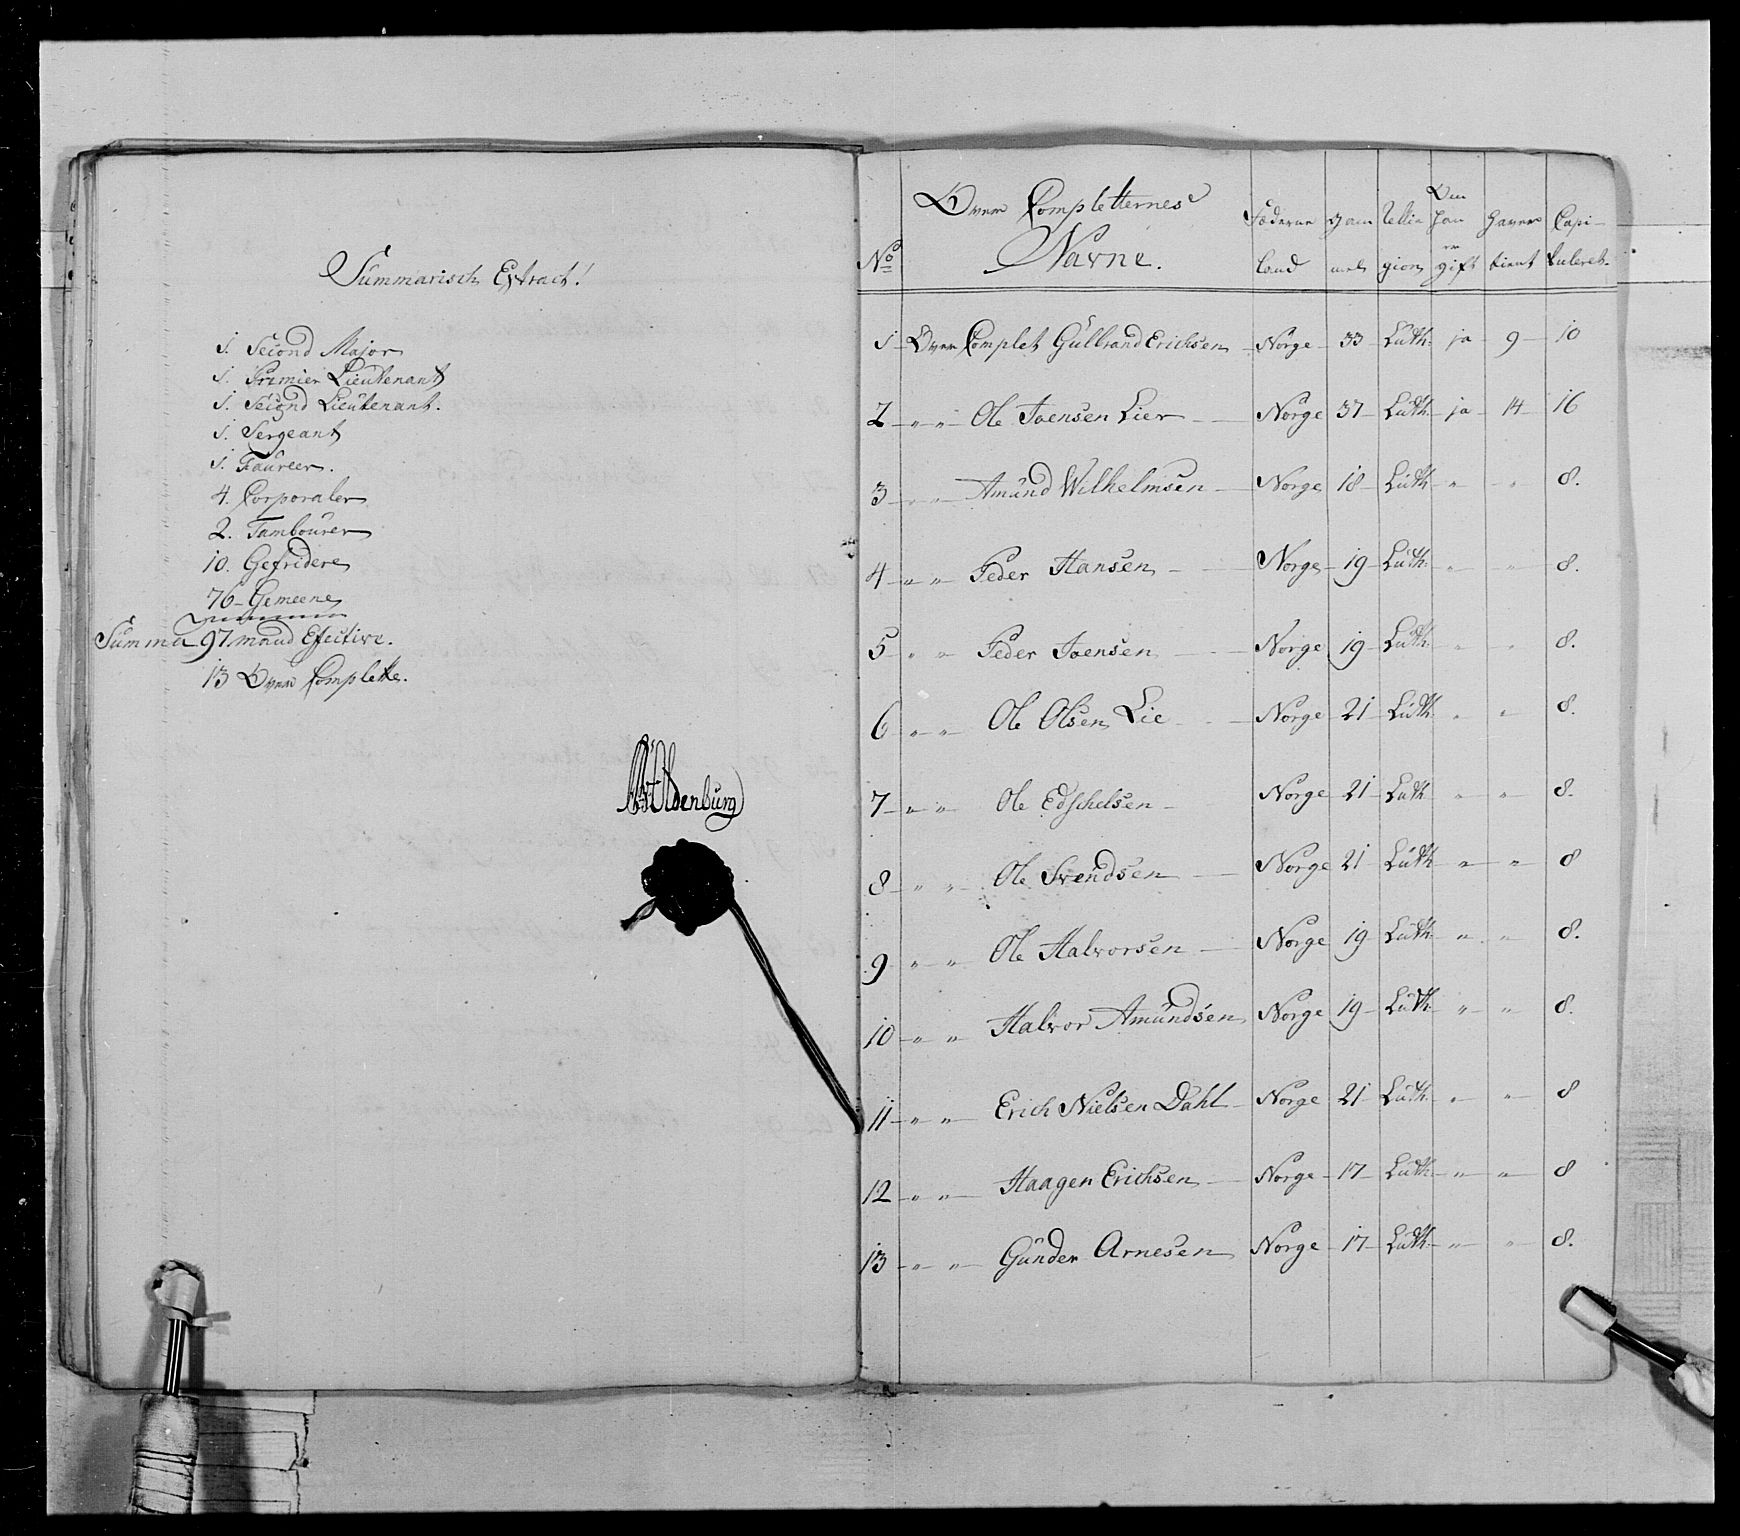 Summarisch Extract!
1. Second Major
1. Premier Lieutenant
1. Second Lieutenant.
1. Sergeant
1. Faureer.
4. Corporaler
2. Tambourer
10. Gefridere
76 Gemeene
Summa 97 mand Efective.
13 Over Complette.
Oldenburg
No Over Completternes Navne. Fæderne land Gammel Religion Om han er gift Haver tient Capituleret
1 Over Complet Gulbrand Erichsen Norge 33 Luth. ja 9 10
2 " " Ole Joensen Lier Norge 37 Luth. ja 14 16
3 " " Amund Wilhelmsen Norge 18 Luth. " " 8.
4 " " Peder Hansen Norge 19 Luth. " " 8.
5 " " Peder Joensen Norge 19 Luth. " " 8.
6 " " Ole Olsen Lie Norge 21 Luth. " " 8.
7 " " Ole Edschelsen Norge 21 Luth " " 8.
8 " " Ole Svendsen Norge 21 Luth " " 8
9 " " Ole Halvorsen Norge 19 Luth. " " 8.
10 " " Halvor Amundsen Norge 19 Luth. " " 8.
11 " " Erich Nielsen Dahl Norge 21 Luth. " " 8
12 " " Haagen Erichsen Norge 17 Luth. " " 8
13 " " Gunder Arnesen Norge 17 Luth. " " 8.